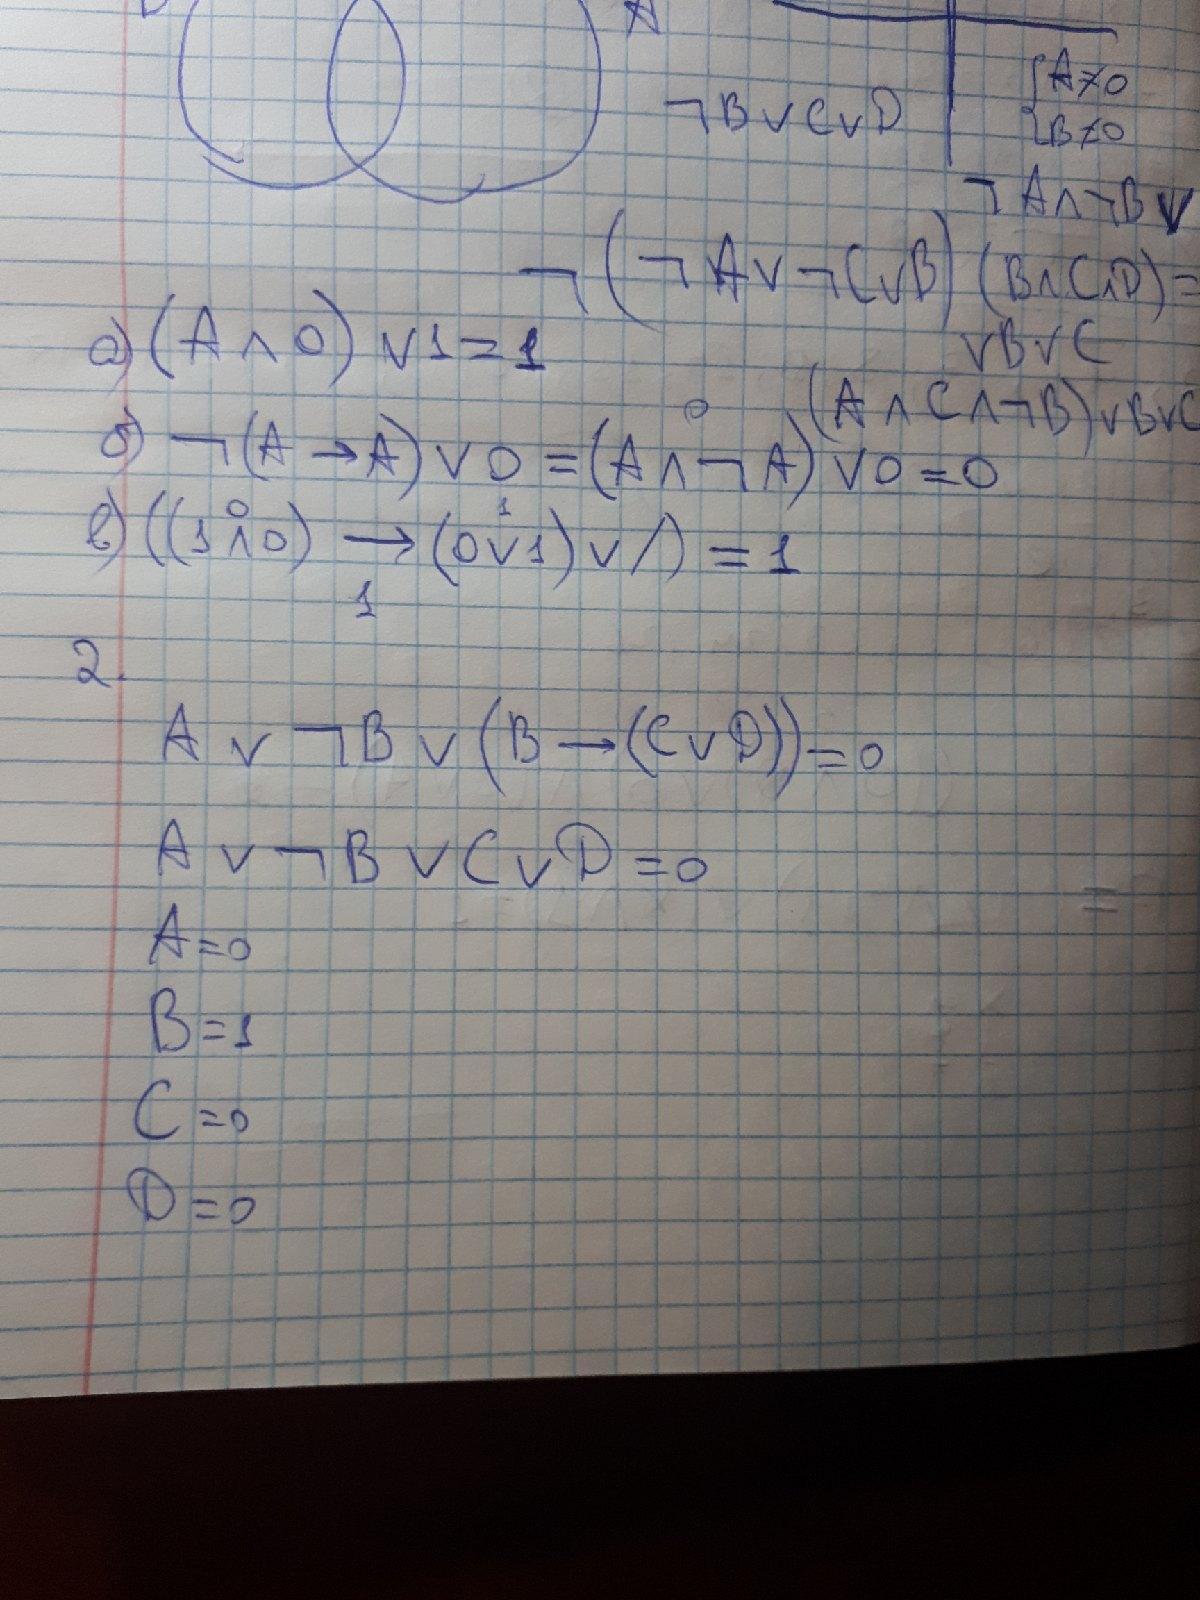 A
¬B∨C∨D
{A≠0
{B≠0
¬A∧¬B∨
¬(¬A∨¬C∨B) (B∧C∧D)=
∨B∨C
а) (A∧0)∨1=1
(A∧C∧¬B)∨B∨C
0
б) ¬(A→A)∨0=(A∧¬A)∨0=0
0 1
в) ((1∧0)→(0∨1)∨A)=1
1
2.
A∨¬B∨(B→(C∨D))=0
A∨¬B∨C∨D=0
A=0
B=1
C=0
D=0